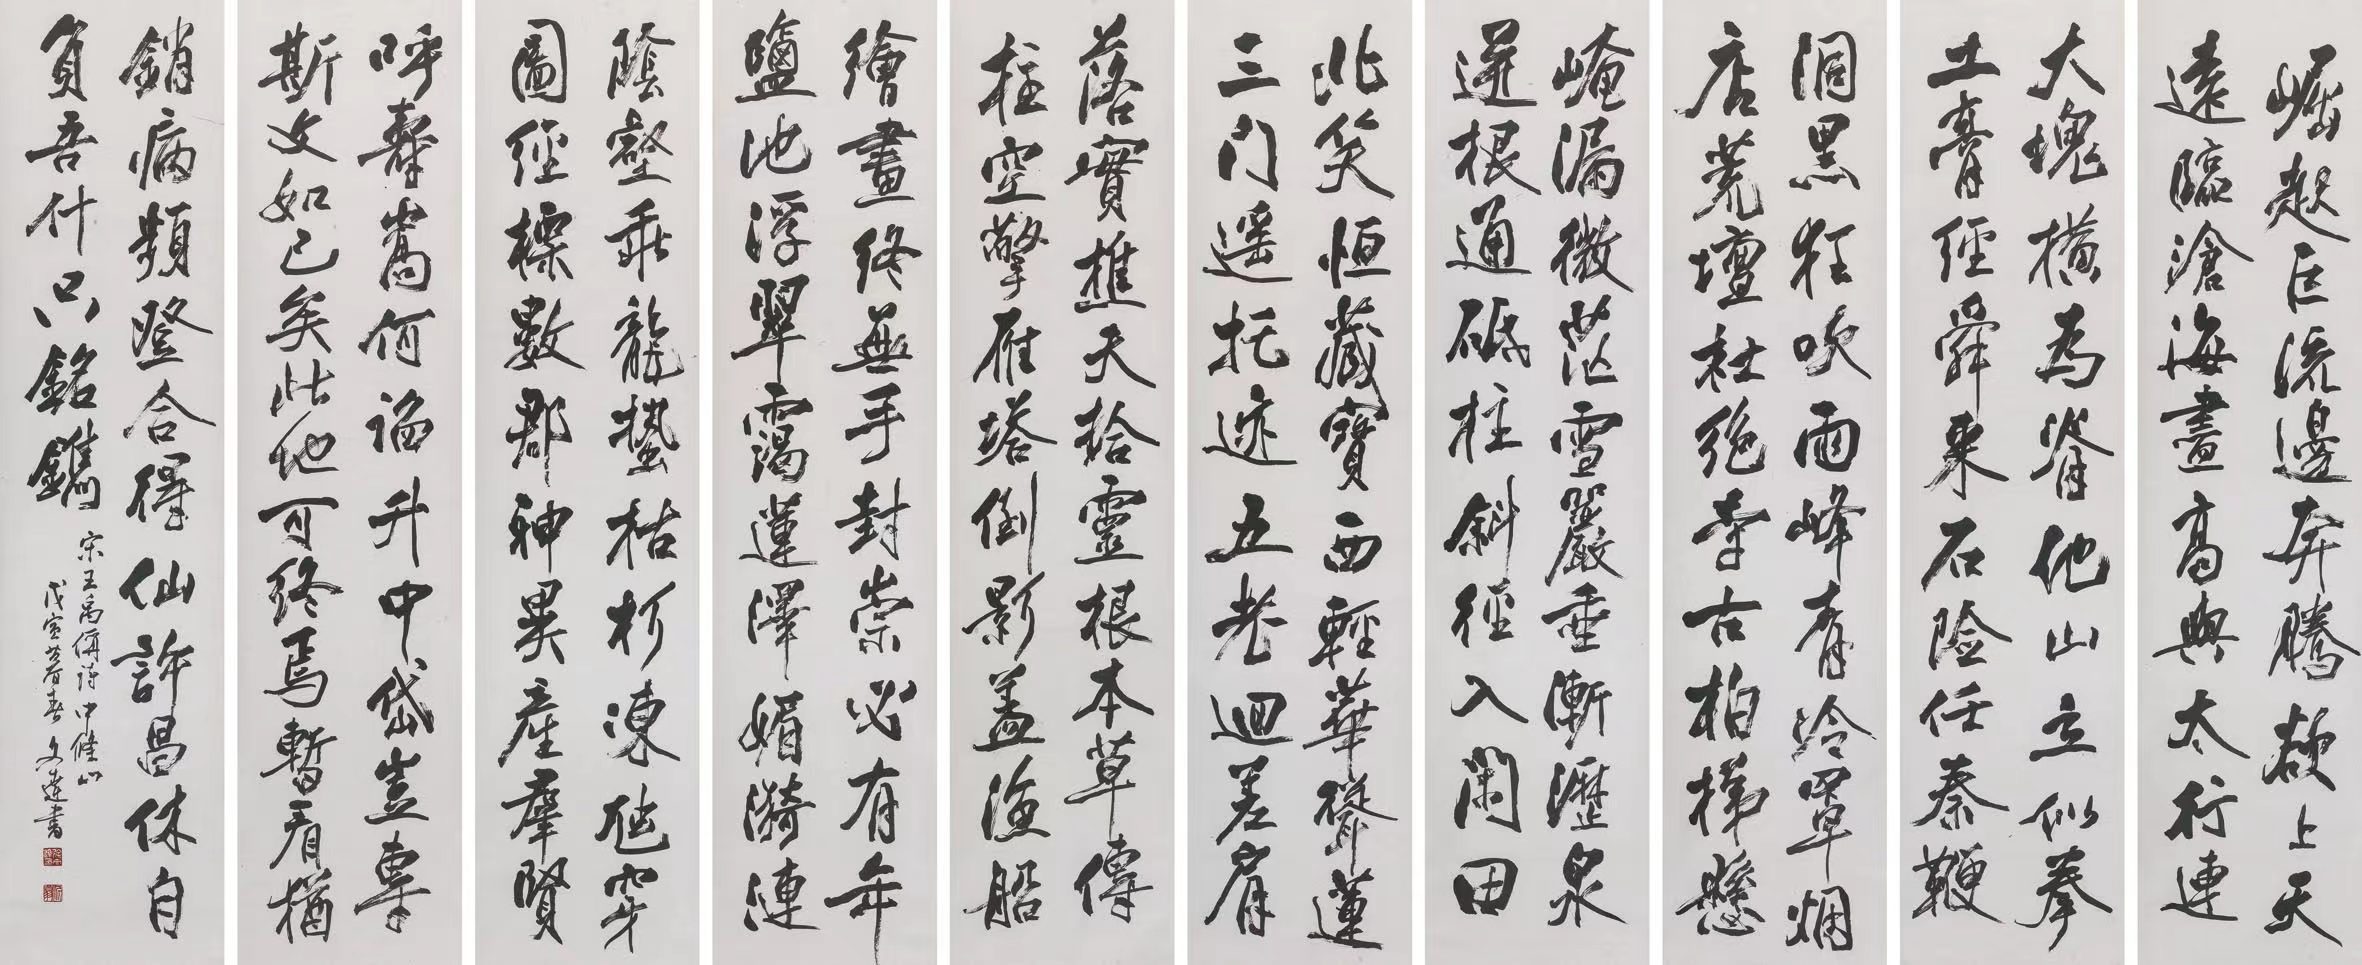 崛起巨流邊奔騰欲上天
遠臨滄海盡高與太行連
大塊橫為脊他山立似拳
土膏經舜耒石險任秦鞭
洞黑狂吹雨峰青冷罩烟
店荒壇杜絕李古柏梯懸
崦漏微茫雪巖垂漸瀝泉
迸根通砥柱斜徑入閑田
北笑恒藏寶西輕華聳蓮
三門遥托迹五老迴差肩
落實樵夫拾靈根本草傳
柱空擎雁塔倒影蓋漁船
繪畫終無手封崇必有年
鹽池浮翠靄蓮澤媚漪漣
陰壑乖龍蟄枯杉凍虺穿
圖經標數郡神異產羣賢
呼壽嵩何諂升中岱豈專
斯文如已矣此地可終焉
暫看猶
銷病頻登合得仙許昌休自
負吾什只銘鐫
宋王禹偁詩中條山
戊寅暮春 文達書